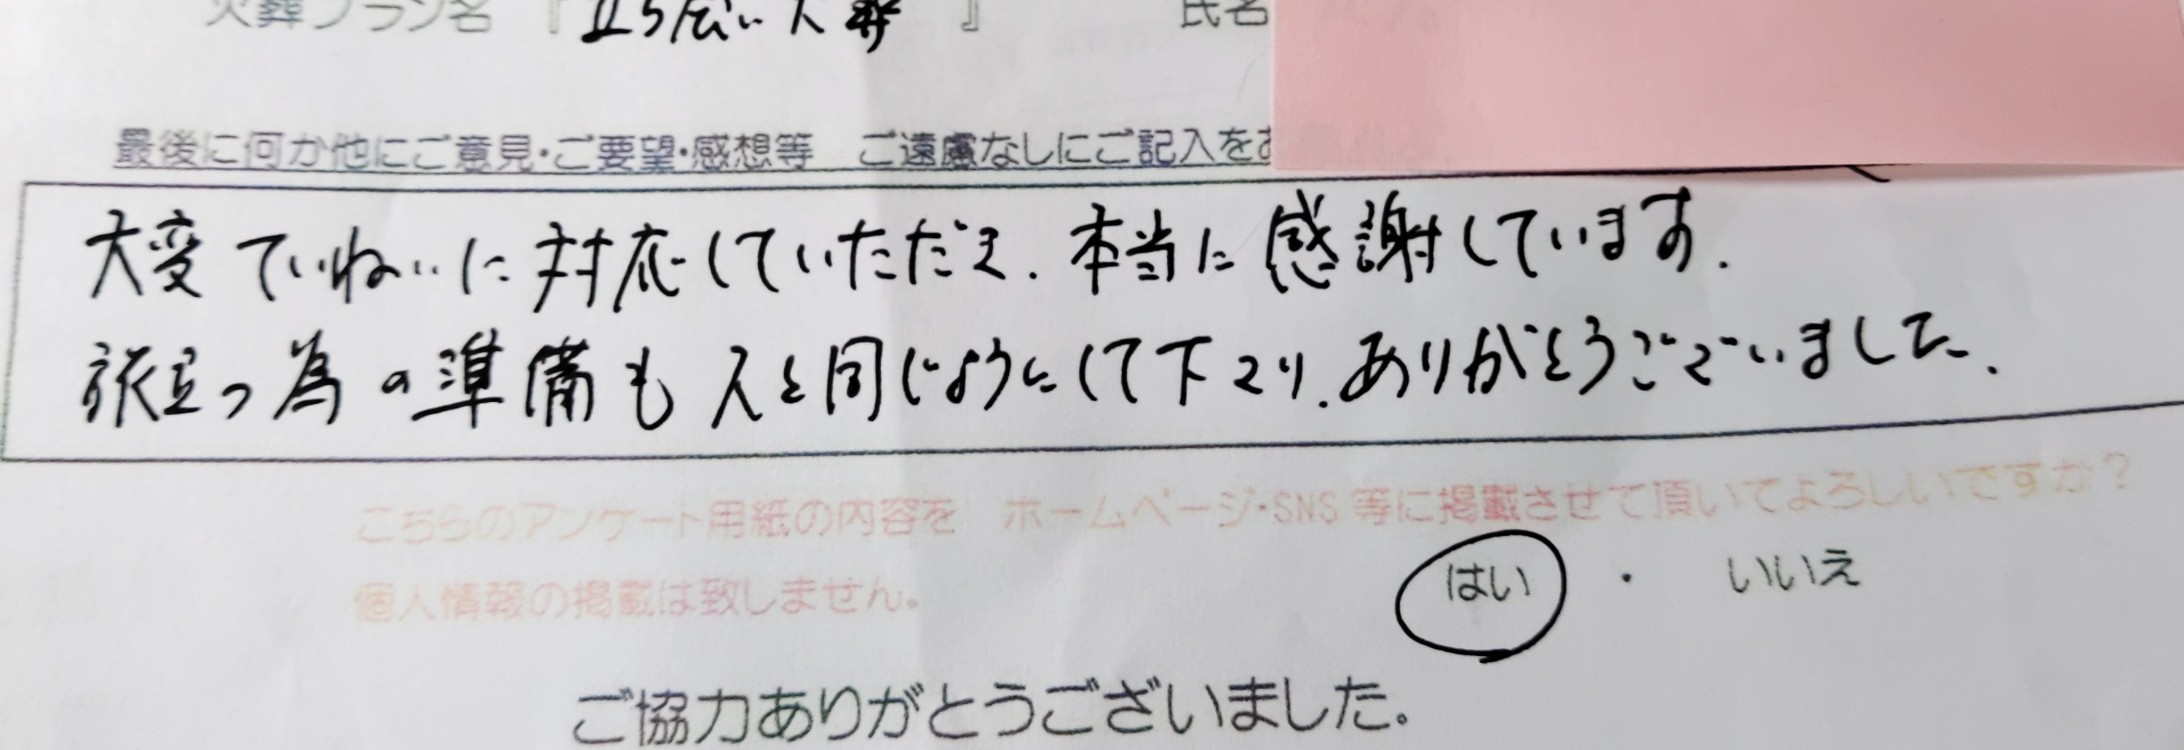 火葬プラン名 『立ち会い火葬』 氏名
最後に何か他にご意見・ご要望・感想等 ご遠慮なしにご記入をお
大変ていねいに対応していただき、本当に感謝しています。
旅立つ為の準備も人と同じようにして下さり、ありがとうございました。
こちらのアンケート用紙の内容を ホームページ・SNS等に掲載させて頂いてよろしいですか?
個人情報の掲載は致しません。
はい ・ いいえ
ご協力ありがとうございました。